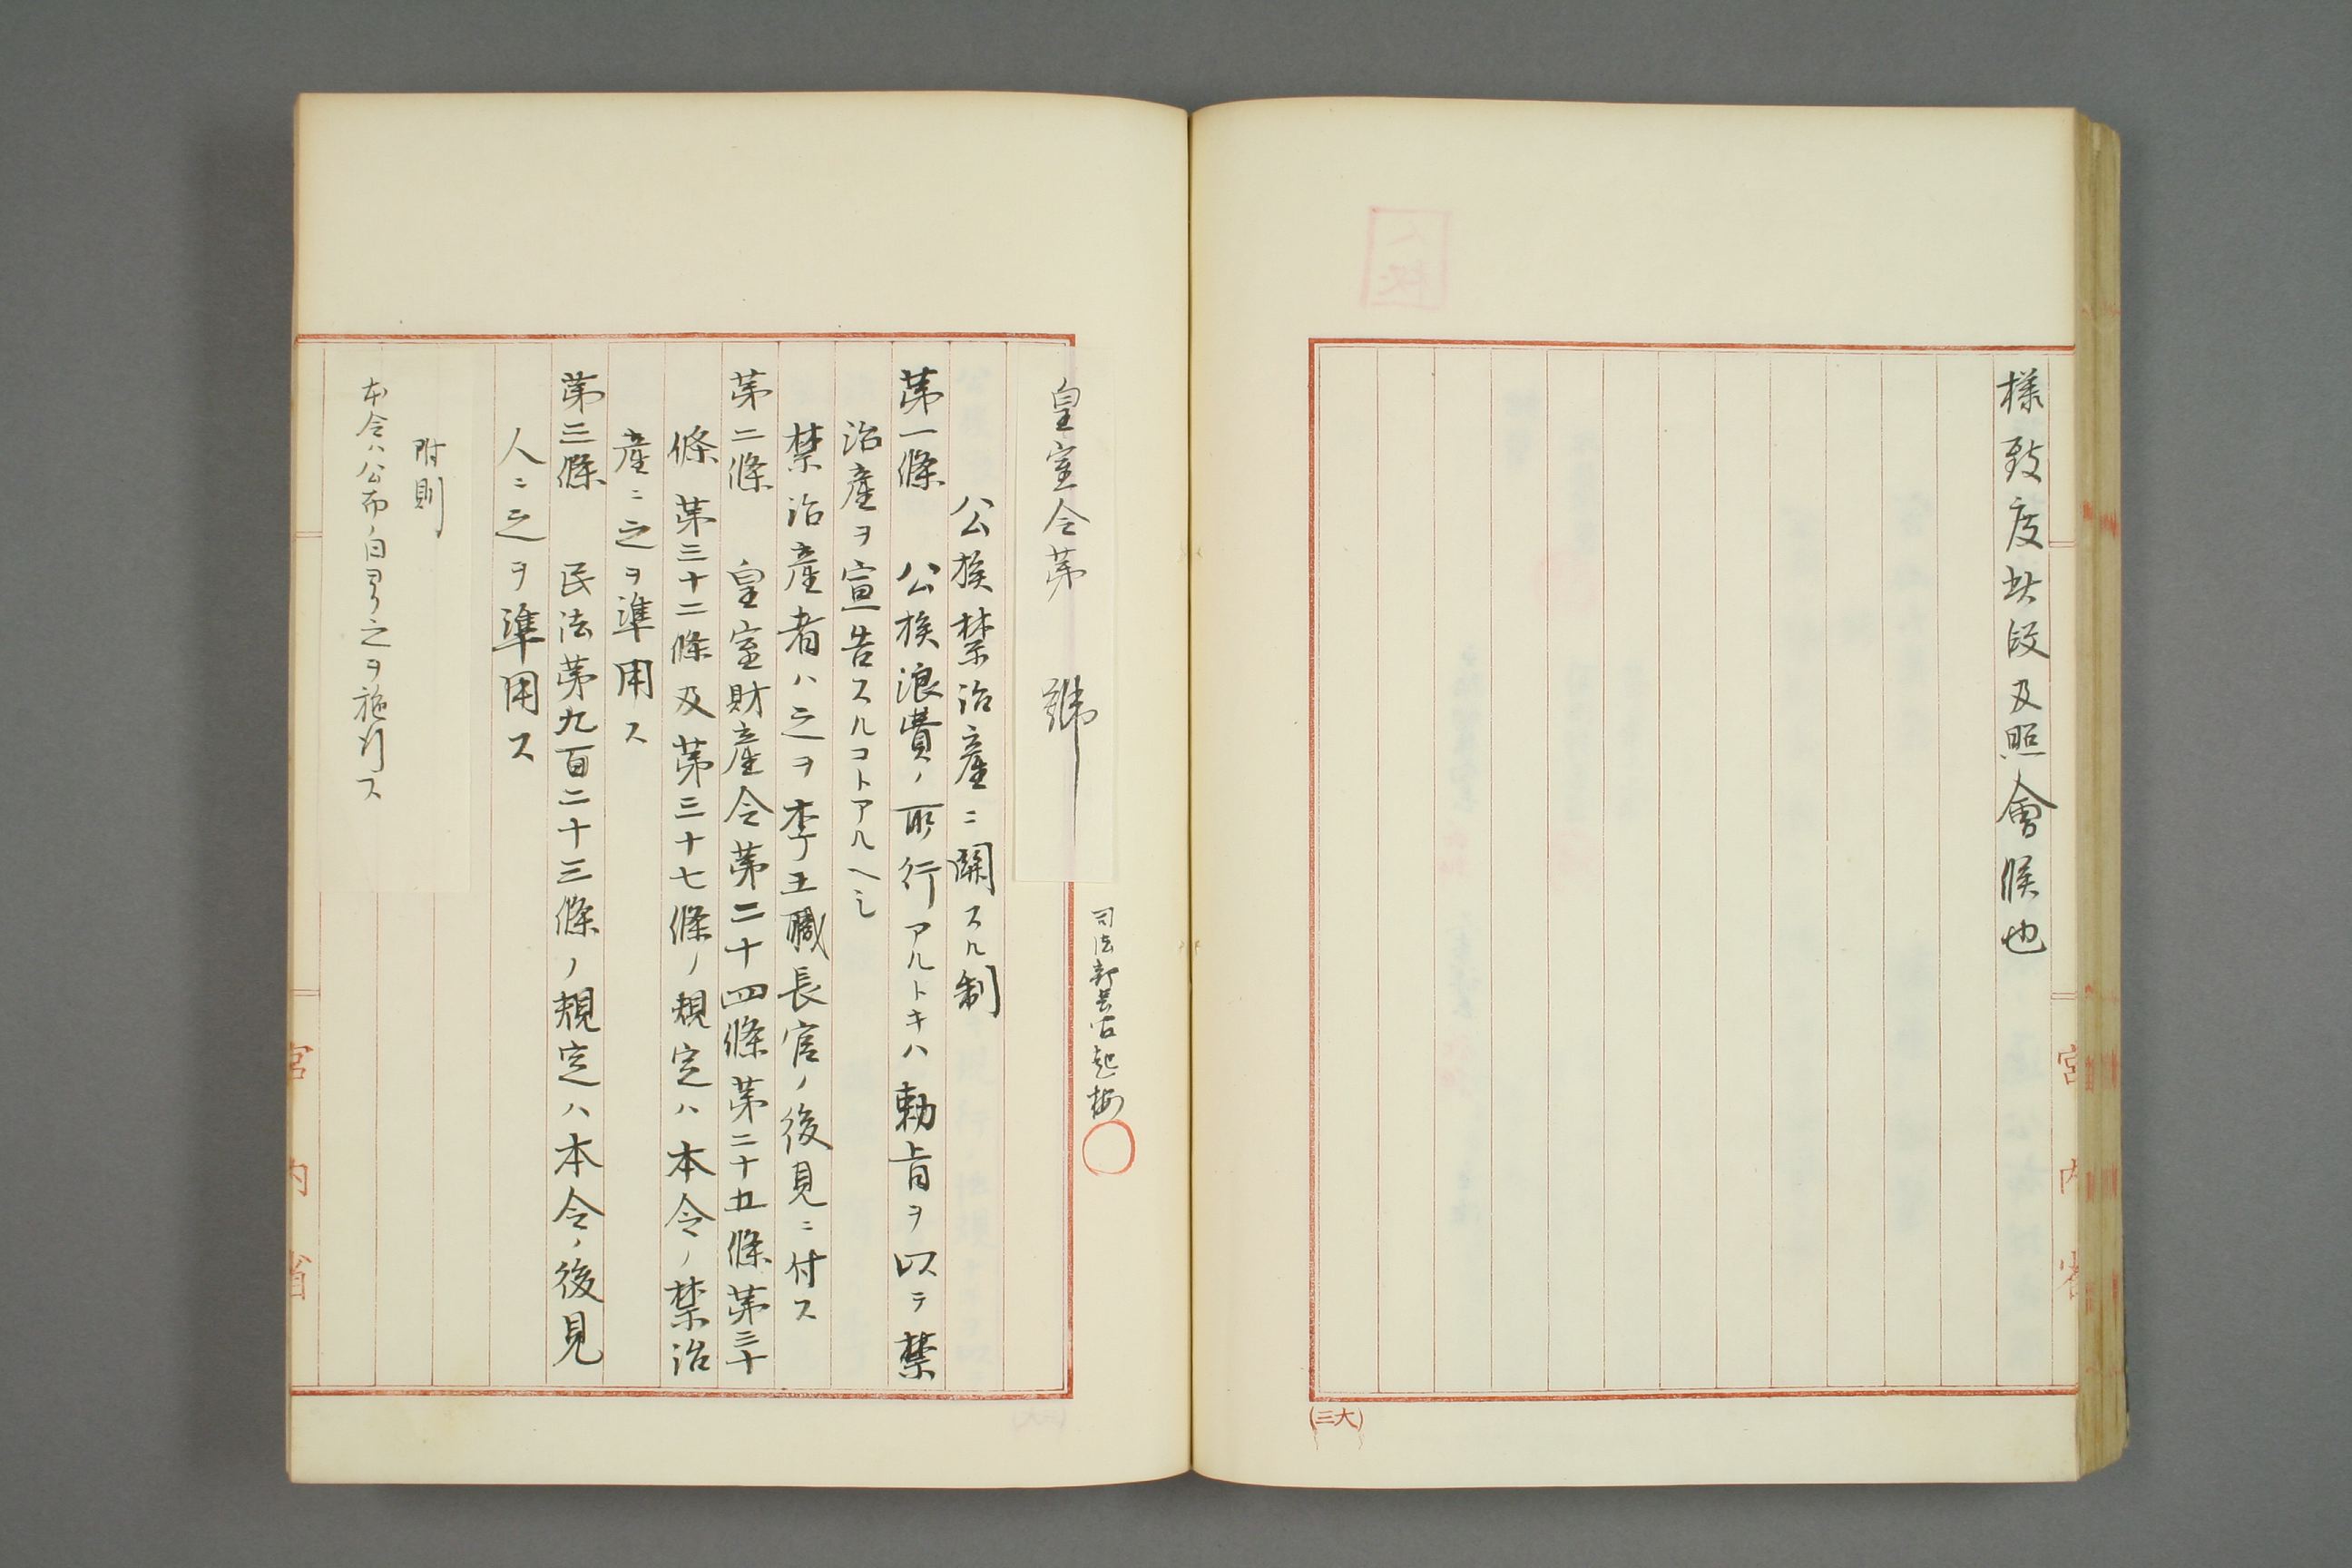 樣致度此段及照會候也
宮內省
(大三)
皇室令第　　號
司法部長官起稿
公族禁治產ニ關スル制
第一條　公族浪費ノ所行アルトキハ勅旨ヲ以テ禁
治產ヲ宣告スルコトアルヘシ
禁治產者ハ之ヲ李王職長官ノ後見ニ付ス
第二條　皇室財產令第二十四條第二十五條第三十
條第三十二條及第三十七條ノ規定ハ本令ノ禁治
產ニ之ヲ準用ス
第三條　民法第九百二十三條ノ規定ハ本令ノ後見
人ニ之ヲ準用ス
附則
本令ハ公布ノ日ヨリ之ヲ施行ス
宮內省